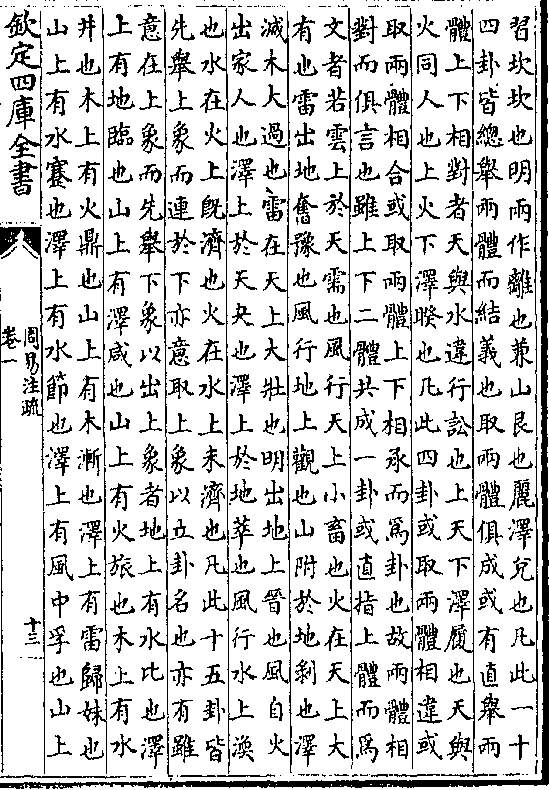 習坎坎也明兩作離也兼山艮也麗澤兌也凡此一十
四卦皆總舉兩體而結義也取兩體俱成或有直舉兩
體上下相對者天與水違行訟也上天下澤履也天與
火同人也上火下澤睽也凡此四卦或取兩體相違或
取兩體相合或取兩體上下相承而爲卦也故兩體相
對而俱言也雖上下二體共成一卦或直指上體而爲
文者若雲上於天需也風行天上小畜也火在天上大
有也雷出地奮豫也風行地上觀也山附於地剝也澤
滅木大過也雷在天上大壯也明出地上晉也風自火
出家人也澤上於天夬也澤上於地萃也風行水上渙
也水在火上旣濟也火在水上未濟也凡此十五卦皆
先舉上象而連於下亦意取上象以立卦名也亦有雖
意在上象而先舉下象以出上象者地上有水比也澤
上有地臨也山上有澤咸也山上有火旅也木上有水
井也木上有火鼎也山上有木漸也澤上有雷歸妹也
山上有水蹇也澤上有水節也澤上有風中孚也山上
欽定四庫全書
周易注疏
卷一
十三